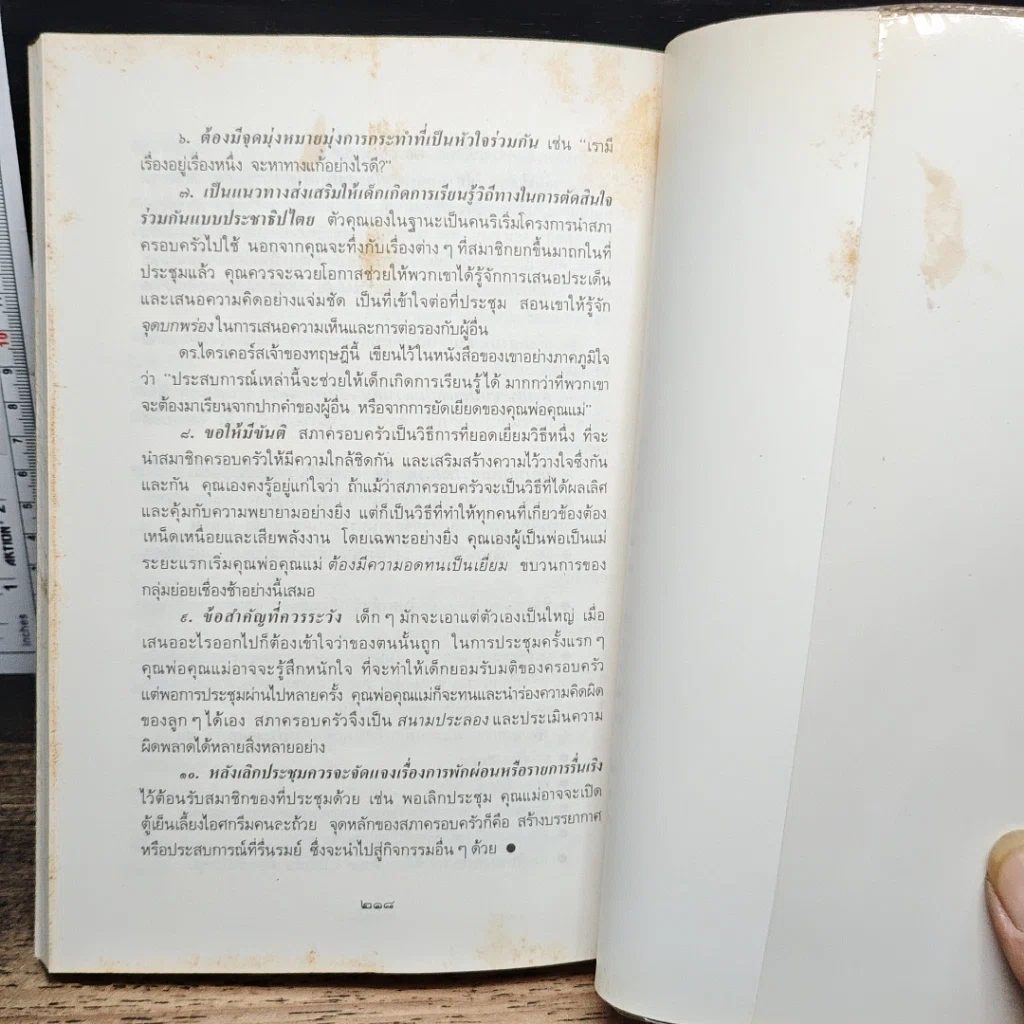 ๖. ต้องมีจุดมุ่งหมายมุ่งการกระทำที่เป็นหัวใจร่วมกัน เช่น "เรามี
เรื่องอยู่เรื่องหนึ่ง จะหาทางแก้อย่างไรดี?"
๗. เป็นแนวทางส่งเสริมให้เด็กเกิดการเรียนรู้วิถีทางในการตัดสินใจ
ร่วมกันแบบประชาธิปไตย ตัวคุณเองในฐานะเป็นคนริเริ่มโครงการนำสภา
ครอบครัวไปใช้ นอกจากคุณจะทึ่งกับเรื่องต่าง ๆ ที่สมาชิกยกขึ้นมาถกในที่
ประชุมแล้ว คุณควรจะฉวยโอกาสช่วยให้พวกเขาได้รู้จักการเสนอประเด็น
และเสนอความคิดอย่างแจ่มชัด เป็นที่เข้าใจต่อที่ประชุม สอนเขาให้รู้จัก
จุดบกพร่องในการเสนอความเห็นและการต่อรองกับผู้อื่น
ดร.ไดรเคอร์สเจ้าของทฤษฎีนี้ เขียนไว้ในหนังสือของเขาอย่างภาคภูมิใจ
ว่า "ประสบการณ์เหล่านี้จะช่วยให้เด็กเกิดการเรียนรู้ได้ มากกว่าที่พวกเขา
จะต้องมาเรียนจากปากคำของผู้อื่น หรือจากการยัดเยียดของคุณพ่อคุณแม่"
๘. ขอให้มีขันติ สภาครอบครัวเป็นวิธีการที่ยอดเยี่ยมวิธีหนึ่ง ที่จะ
นำสมาชิกครอบครัวให้มีความใกล้ชิดกัน และเสริมสร้างความไว้วางใจซึ่งกัน
และกัน คุณเองคงรู้อยู่แก่ใจว่า ถ้าแม้ว่าสภาครอบครัวจะเป็นวิธีที่ได้ผลเลิศ
และคุ้มกับความพยายามอย่างยิ่ง แต่ก็เป็นวิธีที่ทำให้ทุกคนที่เกี่ยวข้องต้อง
เหน็ดเหนื่อยและเสียพลังงาน โดยเฉพาะอย่างยิ่ง คุณเองผู้เป็นพ่อเป็นแม่
ระยะแรกเริ่มคุณพ่อคุณแม่ ต้องมีความอดทนเป็นเยี่ยม ขบวนการของ
กลุ่มย่อยเชื่องช้าอย่างนี้เสมอ
๙. ข้อสำคัญที่ควรระวัง เด็ก ๆ มักจะเอาแต่ตัวเองเป็นใหญ่ เมื่อ
เสนออะไรออกไปก็ต้องเข้าใจว่าของตนนั้นถูก ในการประชุมครั้งแรก ๆ
คุณพ่อคุณแม่อาจจะรู้สึกหนักใจ ที่จะทำให้เด็กยอมรับมติของครอบครัว
แต่พอการประชุมผ่านไปหลายครั้ง คุณพ่อคุณแม่ก็จะทนและนำร่องความคิดผิด
ของลูก ๆ ได้เอง สภาครอบครัวจึงเป็น สนามประลอง และประเมินความ
ผิดพลาดได้หลายสิ่งหลายอย่าง
๑๐. หลังเลิกประชุมควรจะจัดแจงเรื่องการพักผ่อนหรือรายการรื่นเริง
ไว้ต้อนรับสมาชิกของที่ประชุมด้วย เช่น พอเลิกประชุม คุณแม่อาจจะเปิด
ตู้เย็นเลี้ยงไอศกรีมคนละถ้วย จุดหลักของสภาครอบครัวก็คือ สร้างบรรยากาศ
หรือประสบการณ์ที่รื่นรมย์ ซึ่งจะนำไปสู่กิจกรรมอื่น ๆ ด้วย ●
๒๑๘
10
9
8
7
6
5
4
3
2
1
AKTION
inches